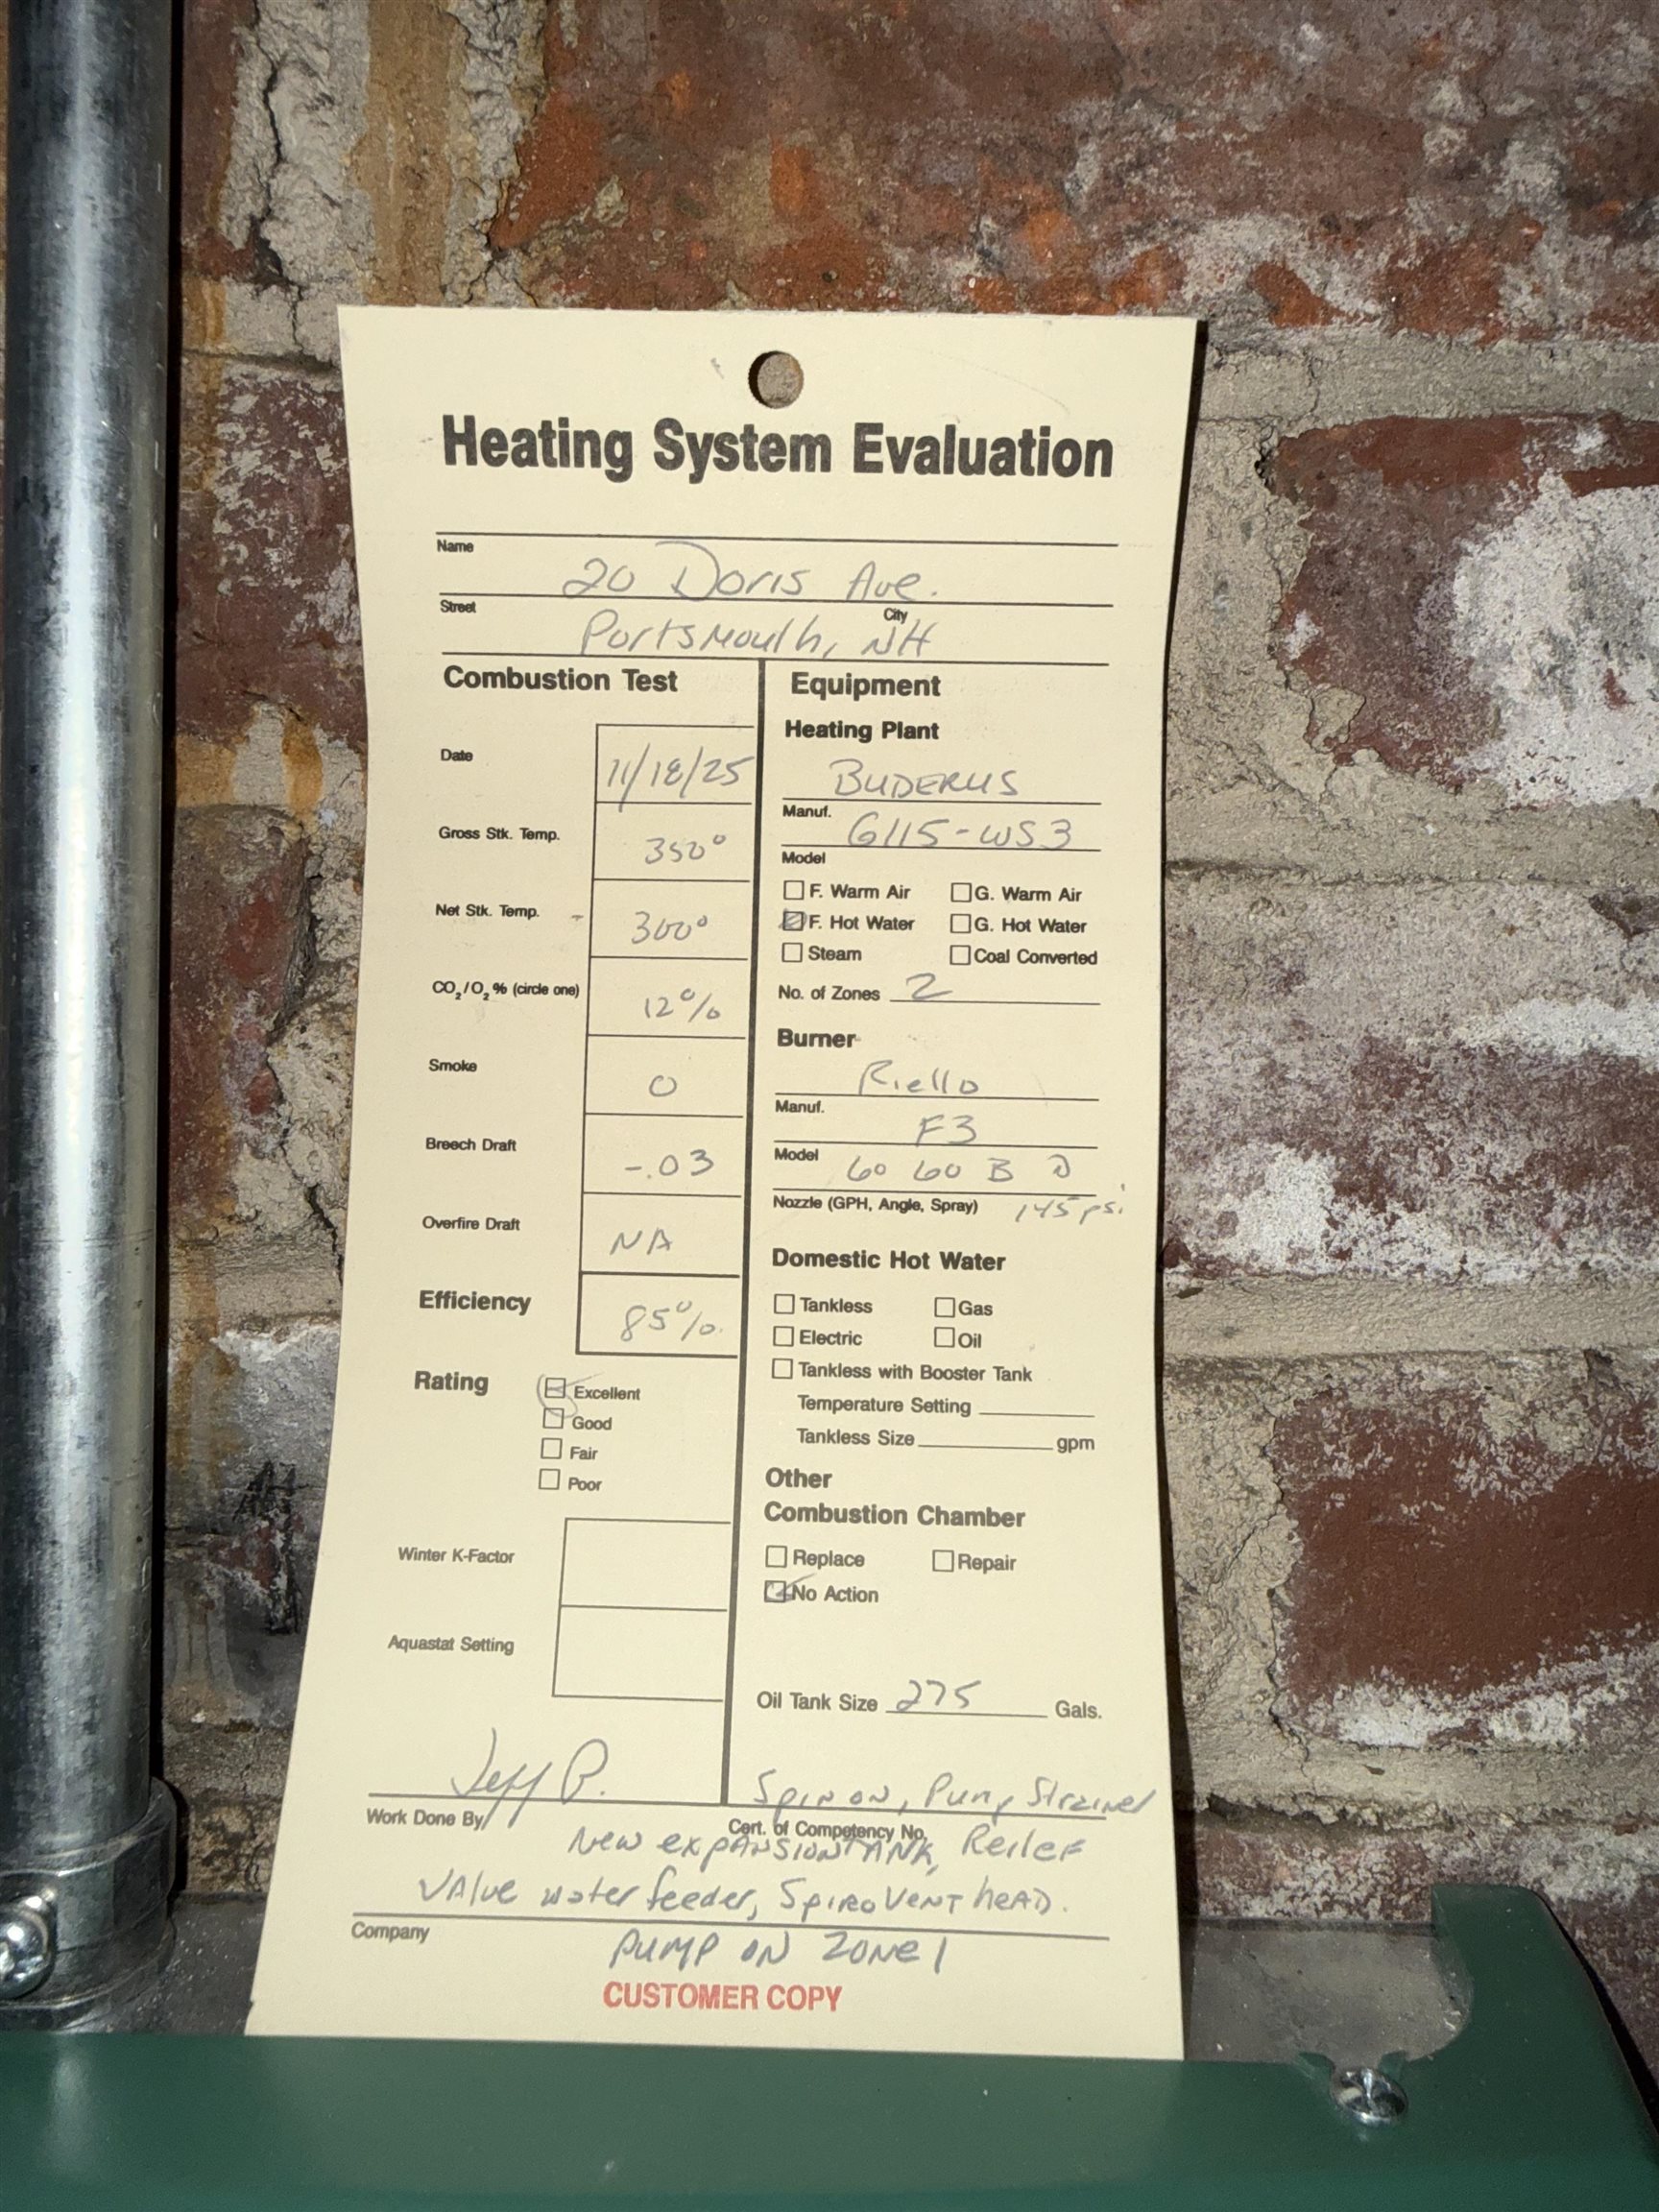 Heating System Evaluation
Name
20 Doris Ave.
Street City
Portsmouth, NH
Combustion Test
Date 11/18/25
Gross Stk. Temp. 350°
Net Stk. Temp. 300°
CO2/O2 % (circle one) 12%
Smoke 0
Breech Draft -.03
Overfire Draft NA
Efficiency 85%
Rating Excellent
Good
Fair
Poor
Winter K-Factor
Aquastat Setting
Equipment
Heating Plant
BUDERUS
Manuf.
G115-WS3
Model
F. Warm Air G. Warm Air
F. Hot Water G. Hot Water
Steam Coal Converted
No. of Zones 2
Burner
Riello
Manuf.
F3
Model
60 60 B
Nozzle (GPH, Angle, Spray) 145 psi
Domestic Hot Water
Tankless Gas
Electric Oil
Tankless with Booster Tank
Temperature Setting
Tankless Size gpm
Other
Combustion Chamber
Replace Repair
No Action
Oil Tank Size 275 Gals.
Jeff P. Spin on, Pump Strainer
Work Done By Cert. of Competency No.
New expansion TANK, Reilef
VAlve water feeder, SpiroVENT heAD.
Company
PUMP ON ZONE 1
CUSTOMER COPY